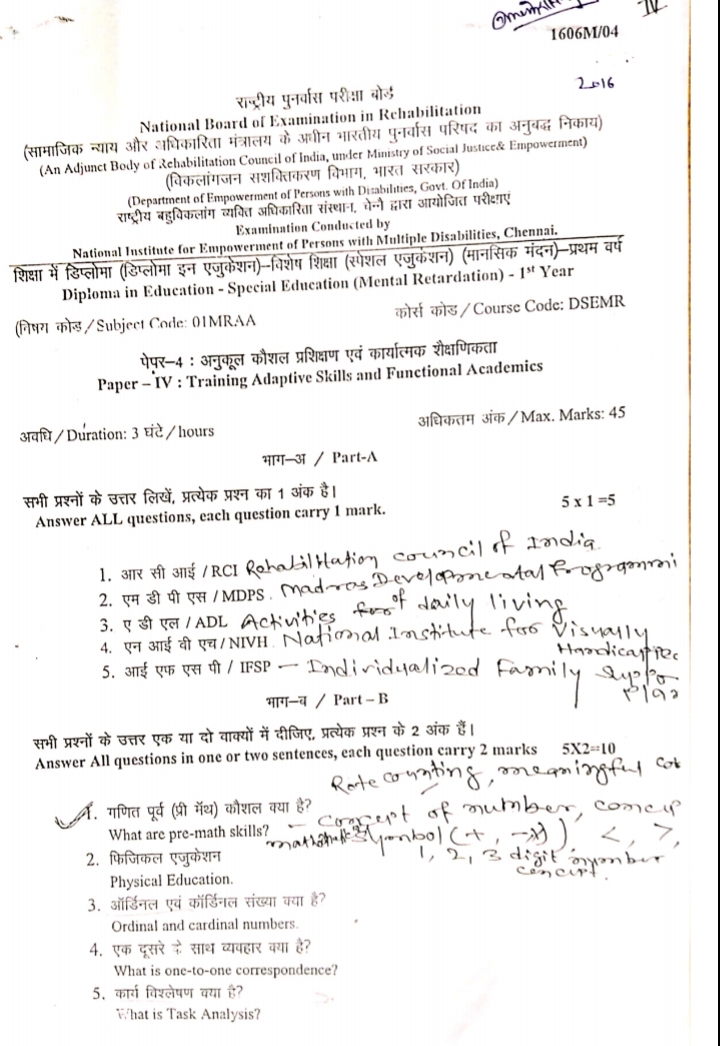 IV
1606M/04
2016
राष्ट्रीय पुनर्वास परीक्षा बोर्ड
National Board of Examination in Rehabilitation
(सामाजिक न्याय और अधिकारिता मंत्रालय के अधीन भारतीय पुनर्वास परिषद का अनुबद्ध निकाय)
(An Adjunct Body of Rehabilitation Council of India, under Ministry of Social Justice& Empowerment)
(विकलांगजन सशक्तिकरण विभाग, भारत सरकार)
(Department of Empowerment of Persons with Disabilities, Govt. Of India)
राष्ट्रीय बहुविकलांग व्यक्ति अधिकारिता संस्थान, चेन्नै द्वारा आयोजित परीक्षाएं
Examination Conducted by
National Institute for Empowerment of Persons with Multiple Disabilities, Chennai.
शिक्षा में डिप्लोमा (डिप्लोमा इन एजुकेशन)–विशेष शिक्षा (स्पेशल एजुकेशन) (मानसिक मंदन)–प्रथम वर्ष
Diploma in Education - Special Education (Mental Retardation) - 1st Year
कोर्स कोड / Course Code: DSEMR
(विषय कोड / Subject Code: 01MRAA
पेपर–4 : अनुकूल कौशल प्रशिक्षण एवं कार्यात्मक शैक्षणिकता
Paper – IV : Training Adaptive Skills and Functional Academics
अधिकतम अंक / Max. Marks: 45
अवधि / Duration: 3 घंटे / hours
भाग–अ / Part-A
सभी प्रश्नों के उत्तर लिखें, प्रत्येक प्रश्न का 1 अंक है।
Answer ALL questions, each question carry 1 mark. 5 x 1 =5
1. आर सी आई / RCI Rehabilitation council of India
2. एम डी पी एस / MDPS. Madras Developmental Programmi
3. ए डी एल / ADL Activities of daily living
4. एन आई वी एच / NIVH. National Institute for Visually
Handicappec
5. आई एफ एस पी / IFSP – Individualized Family Suppo
भाग–ब / Part – B
सभी प्रश्नों के उत्तर एक या दो वाक्यों में दीजिए, प्रत्येक प्रश्न के 2 अंक हैं।
Answer All questions in one or two sentences, each question carry 2 marks 5X2=10
Rote counting, meaningful
1. गणित पूर्व (प्री मॅथ) कौशल क्या है?
What are pre-math skills? – concept of number,
symbol (+, -, x) <, >,
1, 2, 3 digit number
concept.
2. फिजिकल एजुकेशन
Physical Education.
3. ऑर्डिनल एवं कॉर्डिनल संख्या क्या है?
Ordinal and cardinal numbers.
4. एक दूसरे के साथ व्यवहार क्या है?
What is one-to-one correspondence?
5. कार्य विश्लेषण क्या है?
What is Task Analysis?